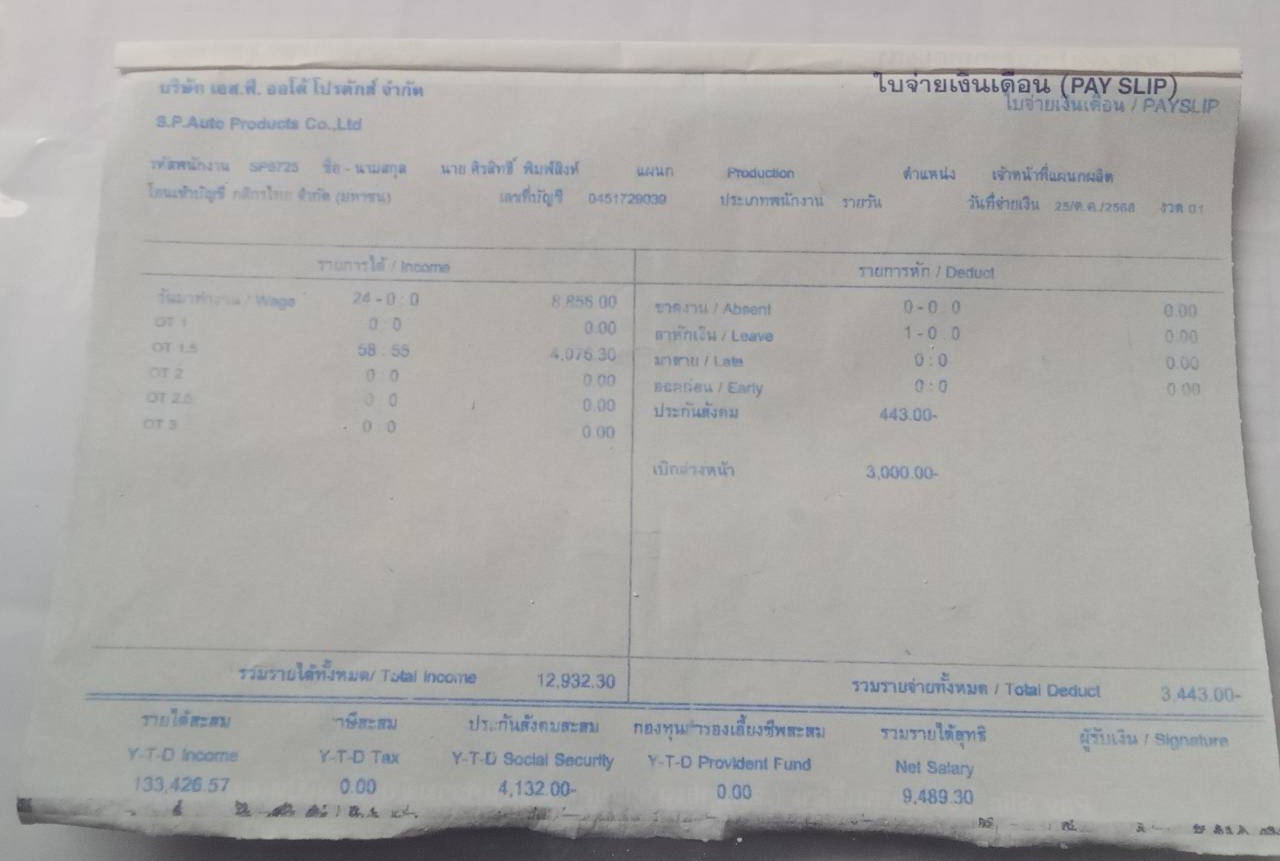 ใบจ่ายเงินเดือน (PAY SLIP)
บริษัท เอส.พี. ออโต้ โปรดักส์ จำกัด
ใบจ่ายเงินเดือน / PAYSLIP
S.P.Auto Products Co.,Ltd
รหัสพนักงาน SP6725 ชื่อ - นามสกุล นาย ศิรสิทธิ์ พิมพ์สิงห์ แผนก Production ตำแหน่ง เจ้าหน้าที่แผนกผลิต
โอนเข้าบัญชี กสิกรไทย จำกัด (มหาชน) เลขที่บัญชี 0451729039 ประเภทพนักงาน รายวัน วันที่จ่ายเงิน 25/ต.ค./2568 งวด 01
รายการได้ / Income รายการหัก / Deduct
วันมาทำงาน / Wage 24 - 0 : 0 8,856.00 ขาดงาน / Absent 0 - 0 : 0 0.00
OT 1 0 : 0 0.00 ลาหักเงิน / Leave 1 - 0 : 0 0.00
OT 1.5 58 : 55 4,076.30 มาสาย / Late 0 : 0 0.00
OT 2 0 : 0 0.00 ออกก่อน / Early 0 : 0 0.00
OT 2.5 0 : 0 0.00 ประกันสังคม 443.00-
OT 3 0 : 0 0.00
เบิกล่วงหน้า 3,000.00-
รวมรายได้ทั้งหมด/ Total Income 12,932.30 รวมรายจ่ายทั้งหมด / Total Deduct 3,443.00-
รายได้สะสม ภาษีสะสม ประกันสังคมสะสม กองทุนสำรองเลี้ยงชีพสะสม รวมรายได้สุทธิ ผู้รับเงิน / Signature
Y-T-D Income Y-T-D Tax Y-T-D Social Security Y-T-D Provident Fund Net Salary
133,426.57 0.00 4,132.00- 0.00 9,489.30